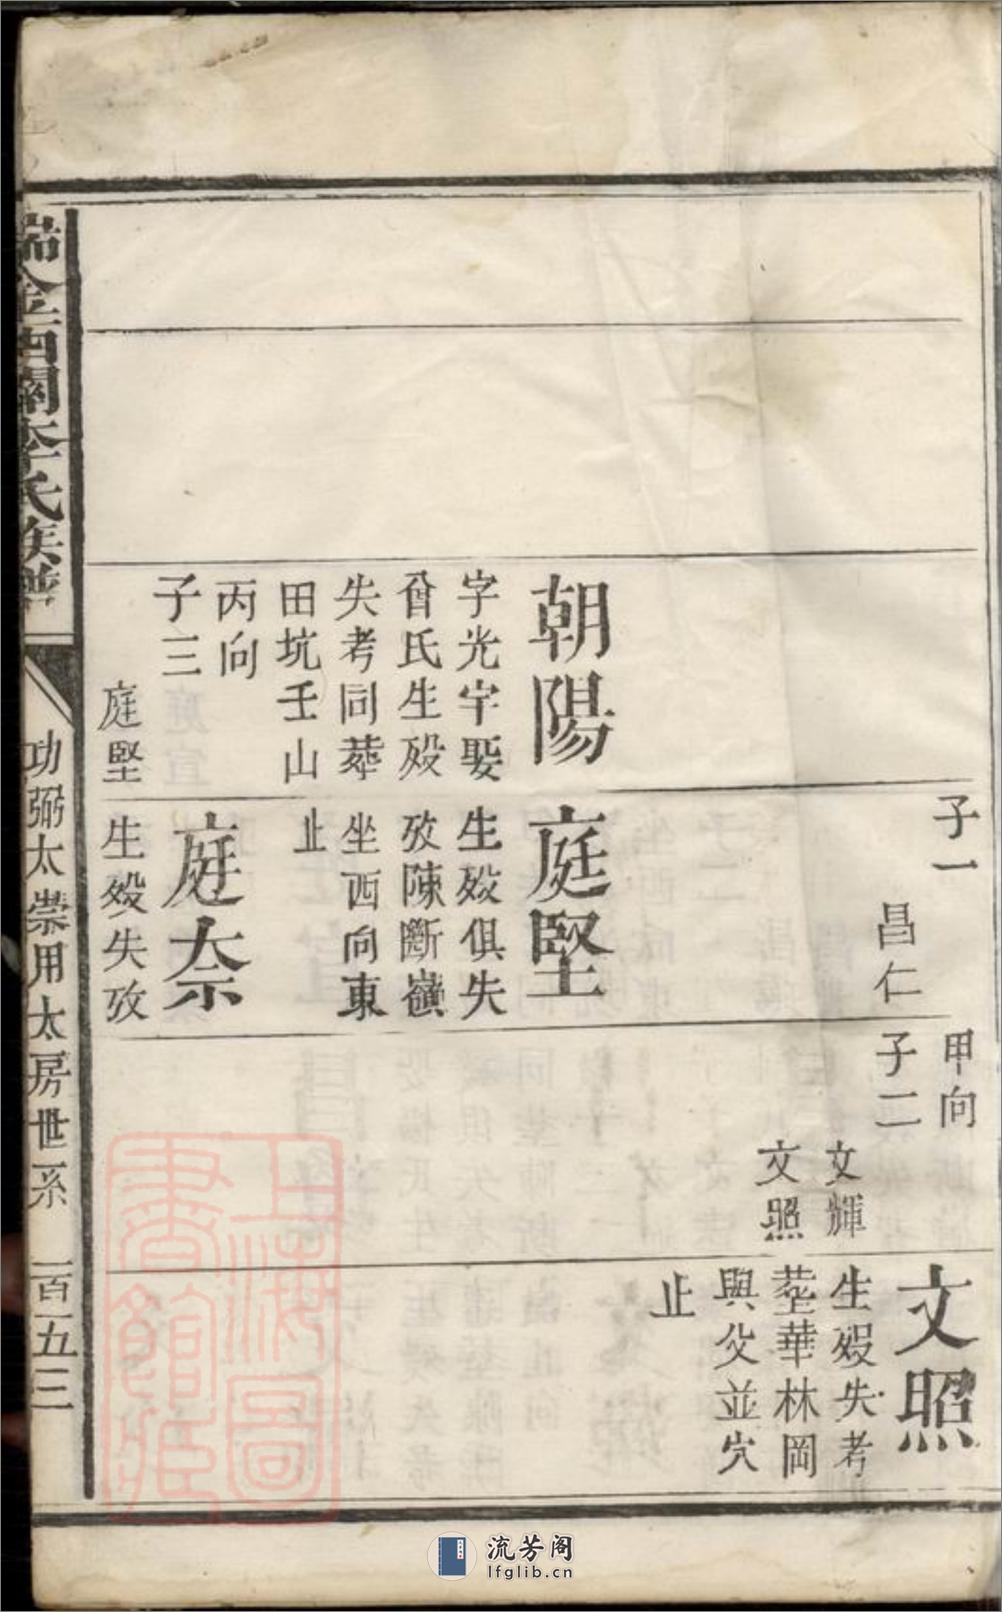 朝陽
字光宇娶
曾氏生殁
失考同葬
田坑壬山
丙向
子三
庭堅
子一
昌仁
庭堅
生殁俱失
攷陳斷嶺
坐西向東
止
庭奈
生殁失攷
甲向
子二
文輝
文照
文照
生殁失考
塟華林岡
與父並穴
止
瑞金西關李氏族譜
功弼太崇用太房世系
一百五三
上海圖書館藏
流芳阁
lfglib.cn